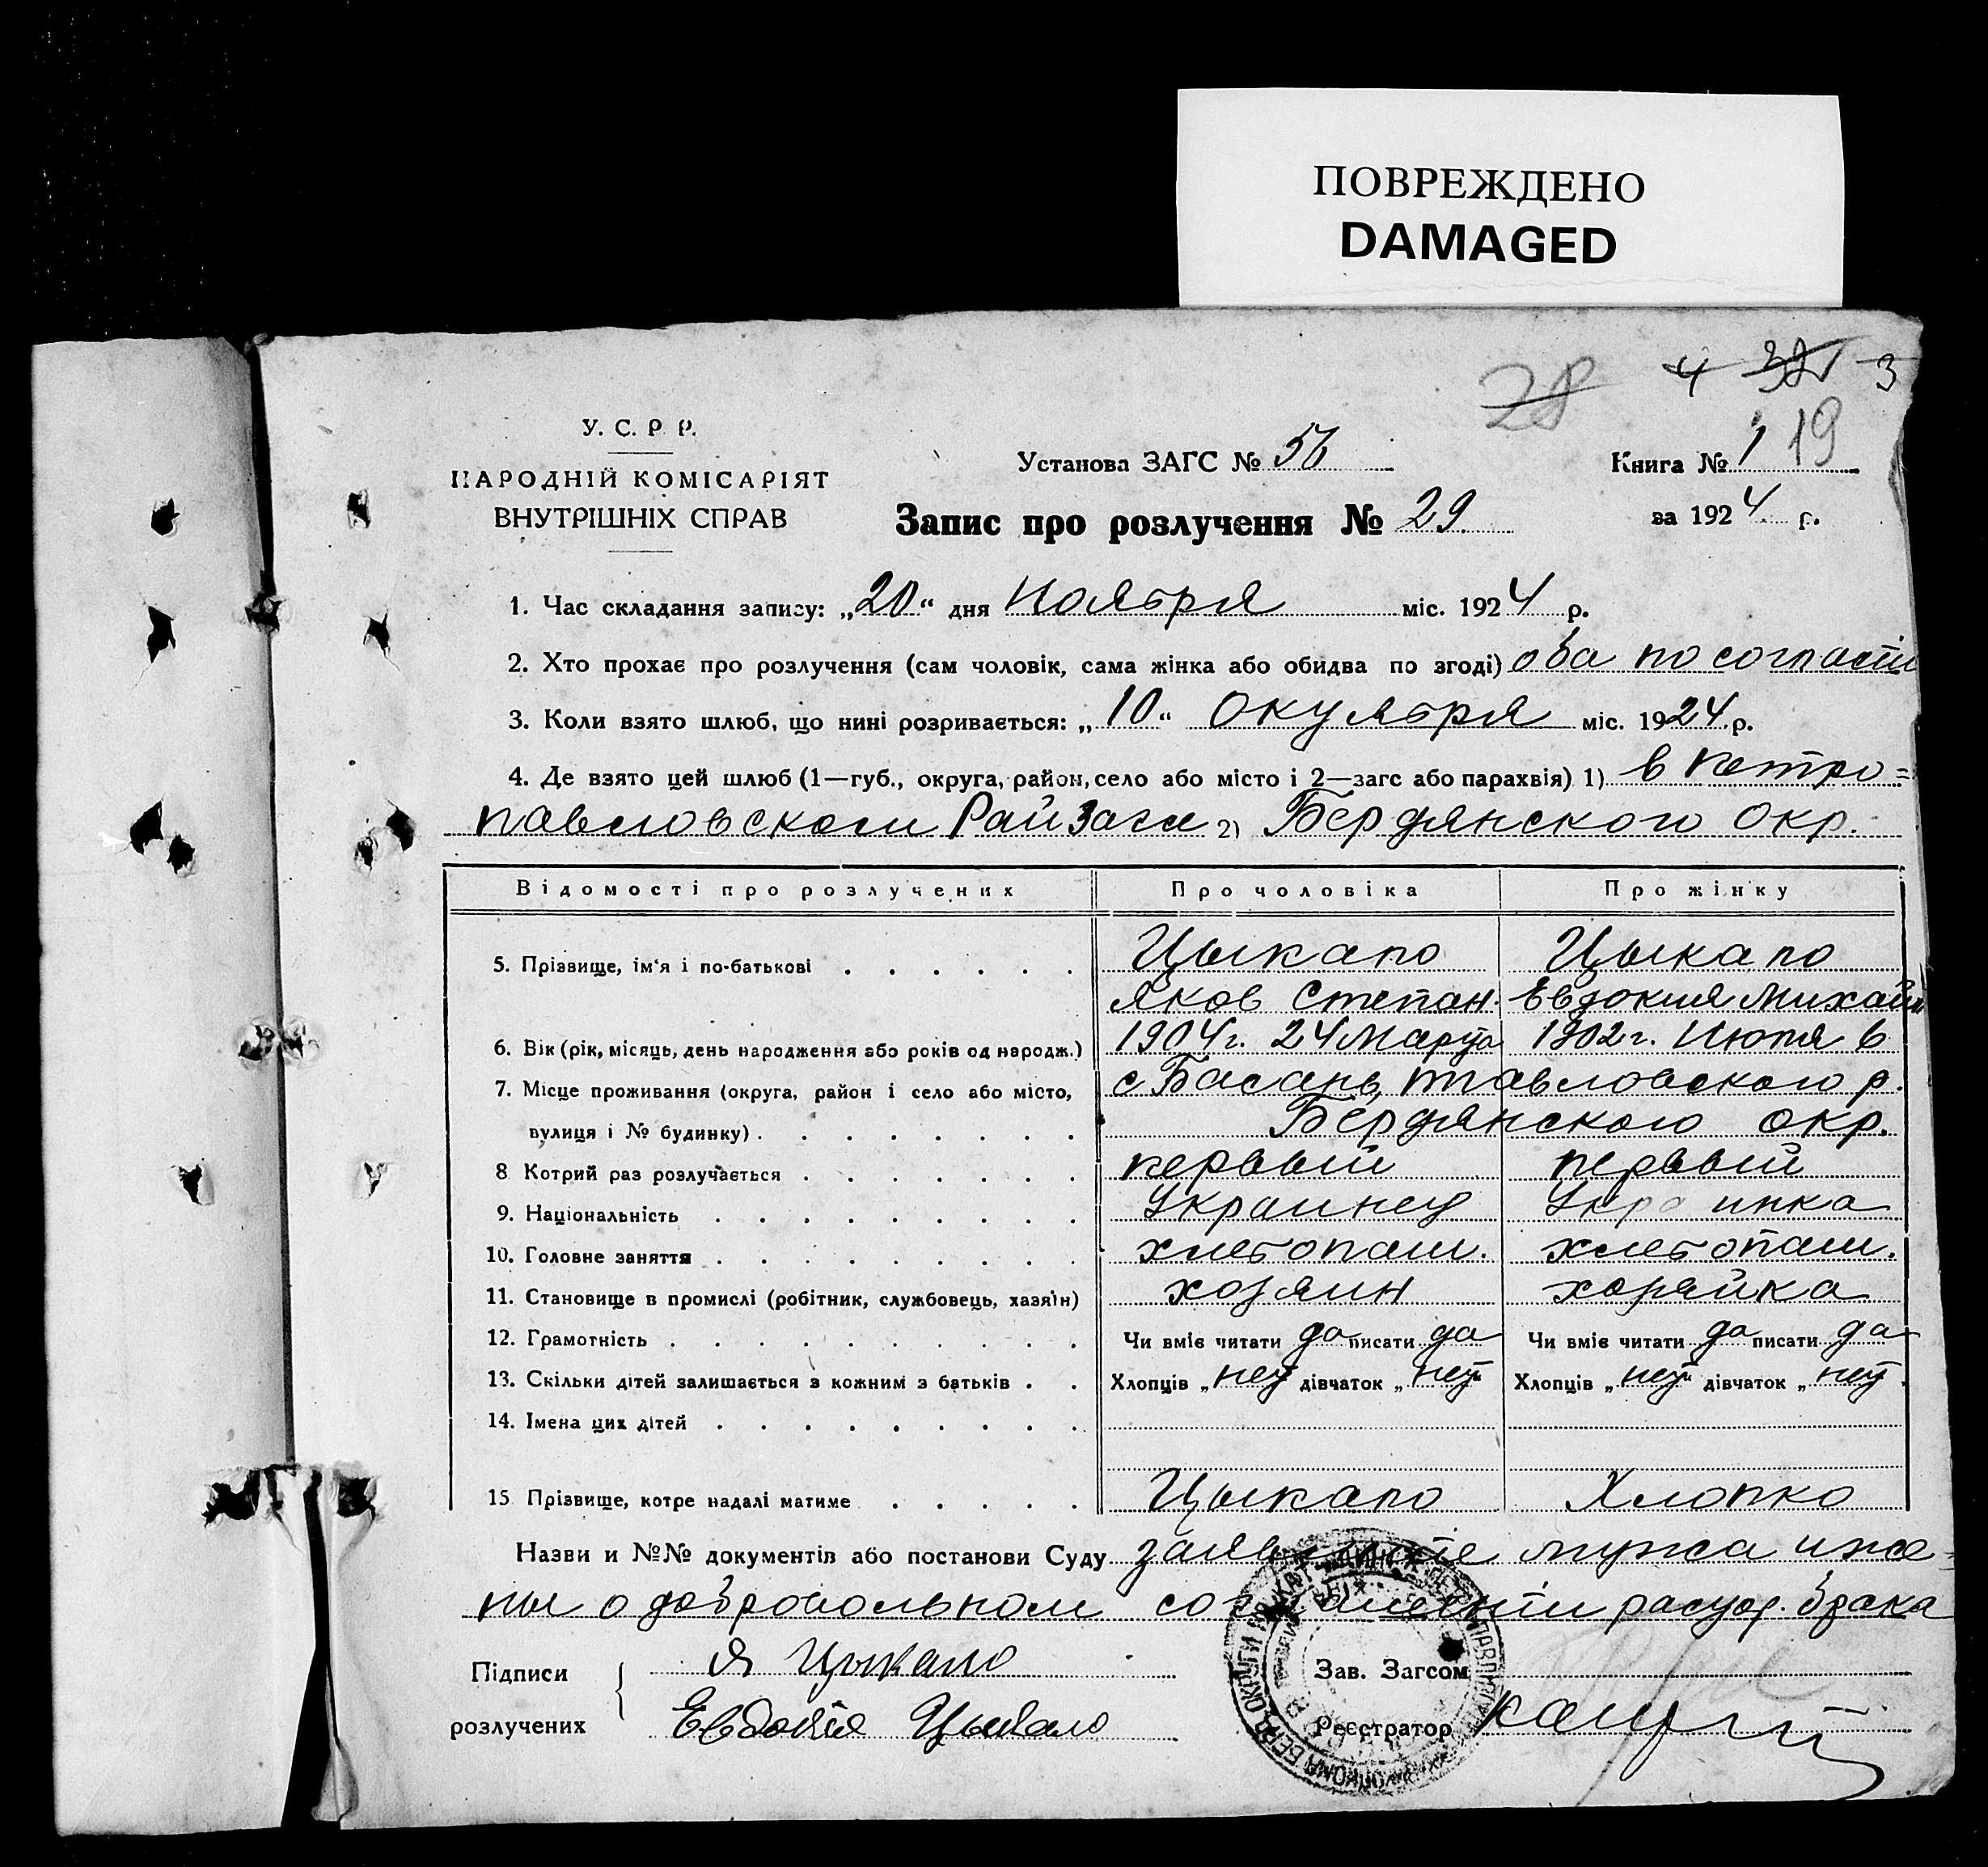 ПОВРЕЖДЕНО
DAMAGED
28 4 3
У. С. Р. Р.
НАРОДНІЙ КОМІСАРІЯТ
ВНУТРІШНІХ СПРАВ
Установа ЗАГС № 56
Книга № 1 19
Запис про розлучення № 29
за 1924 р.
1. Час складання запису: „20“ дня Ноября міс. 1924 р.
2. Хто прохає про розлучення (сам чоловік, сама жінка або обидва по згоді) оба по согласти
3. Коли взято шлюб, що нині розривається: „10“ Октября міс. 1924 р.
4. Де взято цей шлюб (1—губ., округа, район, село або місто і 2—загс або парахвія) 1) в Петро=
павловском Райзагсе 2) Бердянского Окр.
Відомості про розлучених Про чоловіка Про жінку
5. Прізвище, ім'я і по-батькові Цыкало Цыкало
Яков Степан. Евдокия Михайл
6. Вік (рік, місяць, день народження або років од народж.) 1904г. 24 Марта 1902г. Июля 6
7. Місце проживання (округа, район і село або місто, с Басань, павловского р.
вулиця і № будинку) Бердянского окр.
8 Котрий раз розлучається первый первый
9. Національність Украинец Украинка
10. Головне заняття хлебопаш. хлебопаш.
11. Становище в промислі (робітник, службовець, хазяїн) хозяин хозяйка
12. Грамотність Чи вміє читати да писати да Чи вміє читати да писати да
13. Скільки дітей залишається з кожним з батьків Хлопців „ нет дівчаток „ нет Хлопців „ нет дівчаток „ нет
14. Імена цих дітей
15 Прізвище, котре надалі матиме Цыкало Хлопко
Назви и №№ документів або постанови Суду заявление мужа и же=
ны о добровольном соглашении растор. брака
Підписи Я Цыкало Зав. Загсом
розлучених Евдокія Цыкало Реєстратор